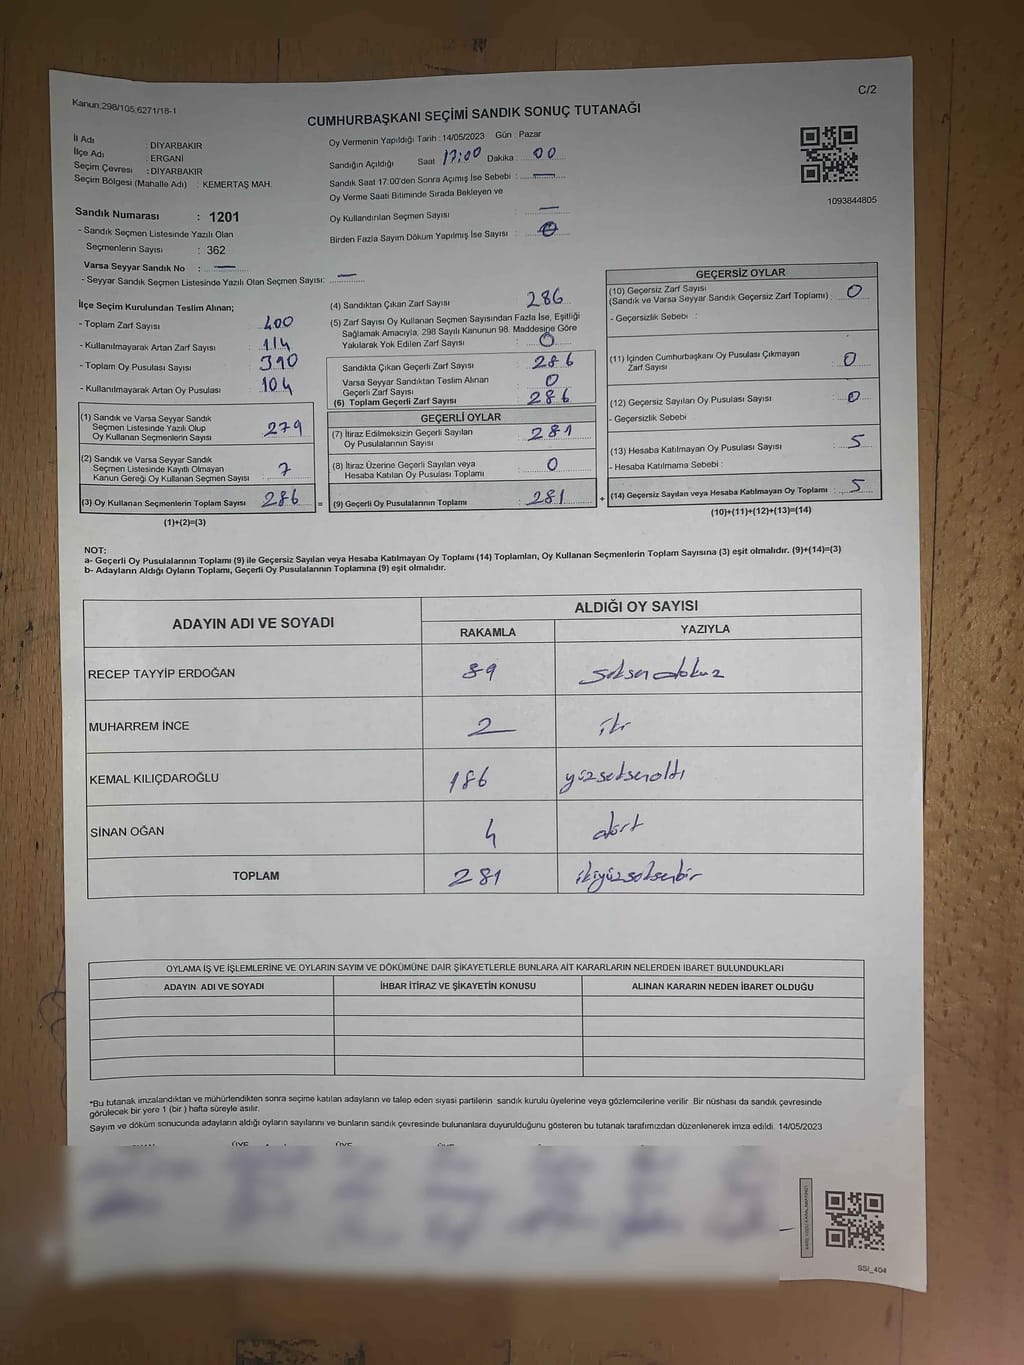 Kanun.298/105,6271/18-1
C/2
CUMHURBAŞKANI SEÇİMİ SANDIK SONUÇ TUTANAĞI
İl Adı : DİYARBAKIR
İlçe Adı : ERGANİ
Seçim Çevresi : DİYARBAKIR
Seçim Bölgesi (Mahalle Adı) : KEMERTAŞ MAH.
Sandık Numarası : 1201
- Sandık Seçmen Listesinde Yazılı Olan
Seçmenlerin Sayısı : 362
Varsa Seyyar Sandık No : —
- Seyyar Sandık Seçmen Listesinde Yazılı Olan Seçmen Sayısı: —
Oy Vermenin Yapıldığı Tarih : 14/05/2023 Gün : Pazar
Sandığın Açıldığı Saat 17:00 Dakika : 00
Sandık Saat 17:00'den Sonra Açımış İse Sebebi : —
Oy Verme Saati Bitiminde Sırada Bekleyen ve
Oy Kullandırılan Seçmen Sayısı : —
Birden Fazla Sayım Döküm Yapılmış İse Sayısı :
1093844805
İlçe Seçim Kurulundan Teslim Alınan;
- Toplam Zarf Sayısı : 400
- Kullanılmayarak Artan Zarf Sayısı : 114
- Toplam Oy Pusulası Sayısı : 390
- Kullanılmayarak Artan Oy Pusulası : 104
(1) Sandık ve Varsa Seyyar Sandık
Seçmen Listesinde Yazılı Olup
Oy Kullanan Seçmenlerin Sayısı : 279
(2) Sandık ve Varsa Seyyar Sandık
Seçmen Listesinde Kayıtlı Olmayan
Kanun Gereği Oy Kullanan Seçmen Sayısı : 7
(3) Oy Kullanan Seçmenlerin Toplam Sayısı : 286 =
(1)+(2)=(3)
(4) Sandıktan Çıkan Zarf Sayısı : 286
(5) Zarf Sayısı Oy Kullanan Seçmen Sayısından Fazla İse, Eşitliği
Sağlamak Amacıyla, 298 Sayılı Kanunun 98. Maddesine Göre
Yakılarak Yok Edilen Zarf Sayısı : 0
Sandıkta Çıkan Geçerli Zarf Sayısı : 286
Varsa Seyyar Sandıktan Teslim Alınan
Geçerli Zarf Sayısı : 0
(6) Toplam Geçerli Zarf Sayısı : 286
GEÇERLİ OYLAR
(7) İtiraz Edilmeksizin Geçerli Sayılan
Oy Pusulalarının Sayısı : 281
(8) İtiraz Üzerine Geçerli Sayılan veya
Hesaba Katılan Oy Pusulası Toplamı : 0
(9) Geçerli Oy Pusulalarının Toplamı : 281 +
GEÇERSİZ OYLAR
(10) Geçersiz Zarf Sayısı
(Sandık ve Varsa Seyyar Sandık Geçersiz Zarf Toplamı) : 0
- Geçersizlik Sebebi :
(11) İçinden Cumhurbaşkanı Oy Pusulası Çıkmayan
Zarf Sayısı : 0
(12) Geçersiz Sayılan Oy Pusulası Sayısı : 0
- Geçersizlik Sebebi
(13) Hesaba Katılmayan Oy Pusulası Sayısı : 5
- Hesaba Katılmama Sebebi :
(14) Geçersiz Sayılan veya Hesaba Katılmayan Oy Toplamı : 5
(10)+(11)+(12)+(13)=(14)
NOT:
a- Geçerli Oy Pusulalarının Toplamı (9) ile Geçersiz Sayılan veya Hesaba Katılmayan Oy Toplamı (14) Toplamları, Oy Kullanan Seçmenlerin Toplam Sayısına (3) eşit olmalıdır. (9)+(14)=(3)
b- Adayların Aldığı Oyların Toplamı, Geçerli Oy Pusulalarının Toplamına (9) eşit olmalıdır.
ADAYIN ADI VE SOYADI
ALDIĞI OY SAYISI
RAKAMLA YAZIYLA
RECEP TAYYİP ERDOĞAN 89 seksendokuz
MUHARREM İNCE 2 iki
KEMAL KILIÇDAROĞLU 186 yüzseksenaltı
SİNAN OĞAN 4 dört
TOPLAM 281 ikiyüzseksenbir
OYLAMA İŞ VE İŞLEMLERİNE VE OYLARIN SAYIM VE DÖKÜMÜNE DAİR ŞİKAYETLERLE BUNLARA AİT KARARLARIN NELERDEN İBARET BULUNDUKLARI
ADAYIN ADI VE SOYADI İHBAR İTİRAZ VE ŞİKAYETİN KONUSU ALINAN KARARIN NEDEN İBARET OLDUĞU
*Bu tutanak imzalandıktan ve mühürlendikten sonra seçime katılan adayların ve talep eden siyasi partilerin sandık kurulu üyelerine veya gözlemcilerine verilir .Bir nüshası da sandık çevresinde
görülecek bir yere 1 (bir ) hafta süreyle asılır.
Sayım ve döküm sonucunda adayların aldığı oyların sayılarını ve bunların sandık çevresinde bulunanlara duyurulduğunu gösteren bu tutanak tarafımızdan düzenlenerek imza edildi. 14/05/2023
SSI_404